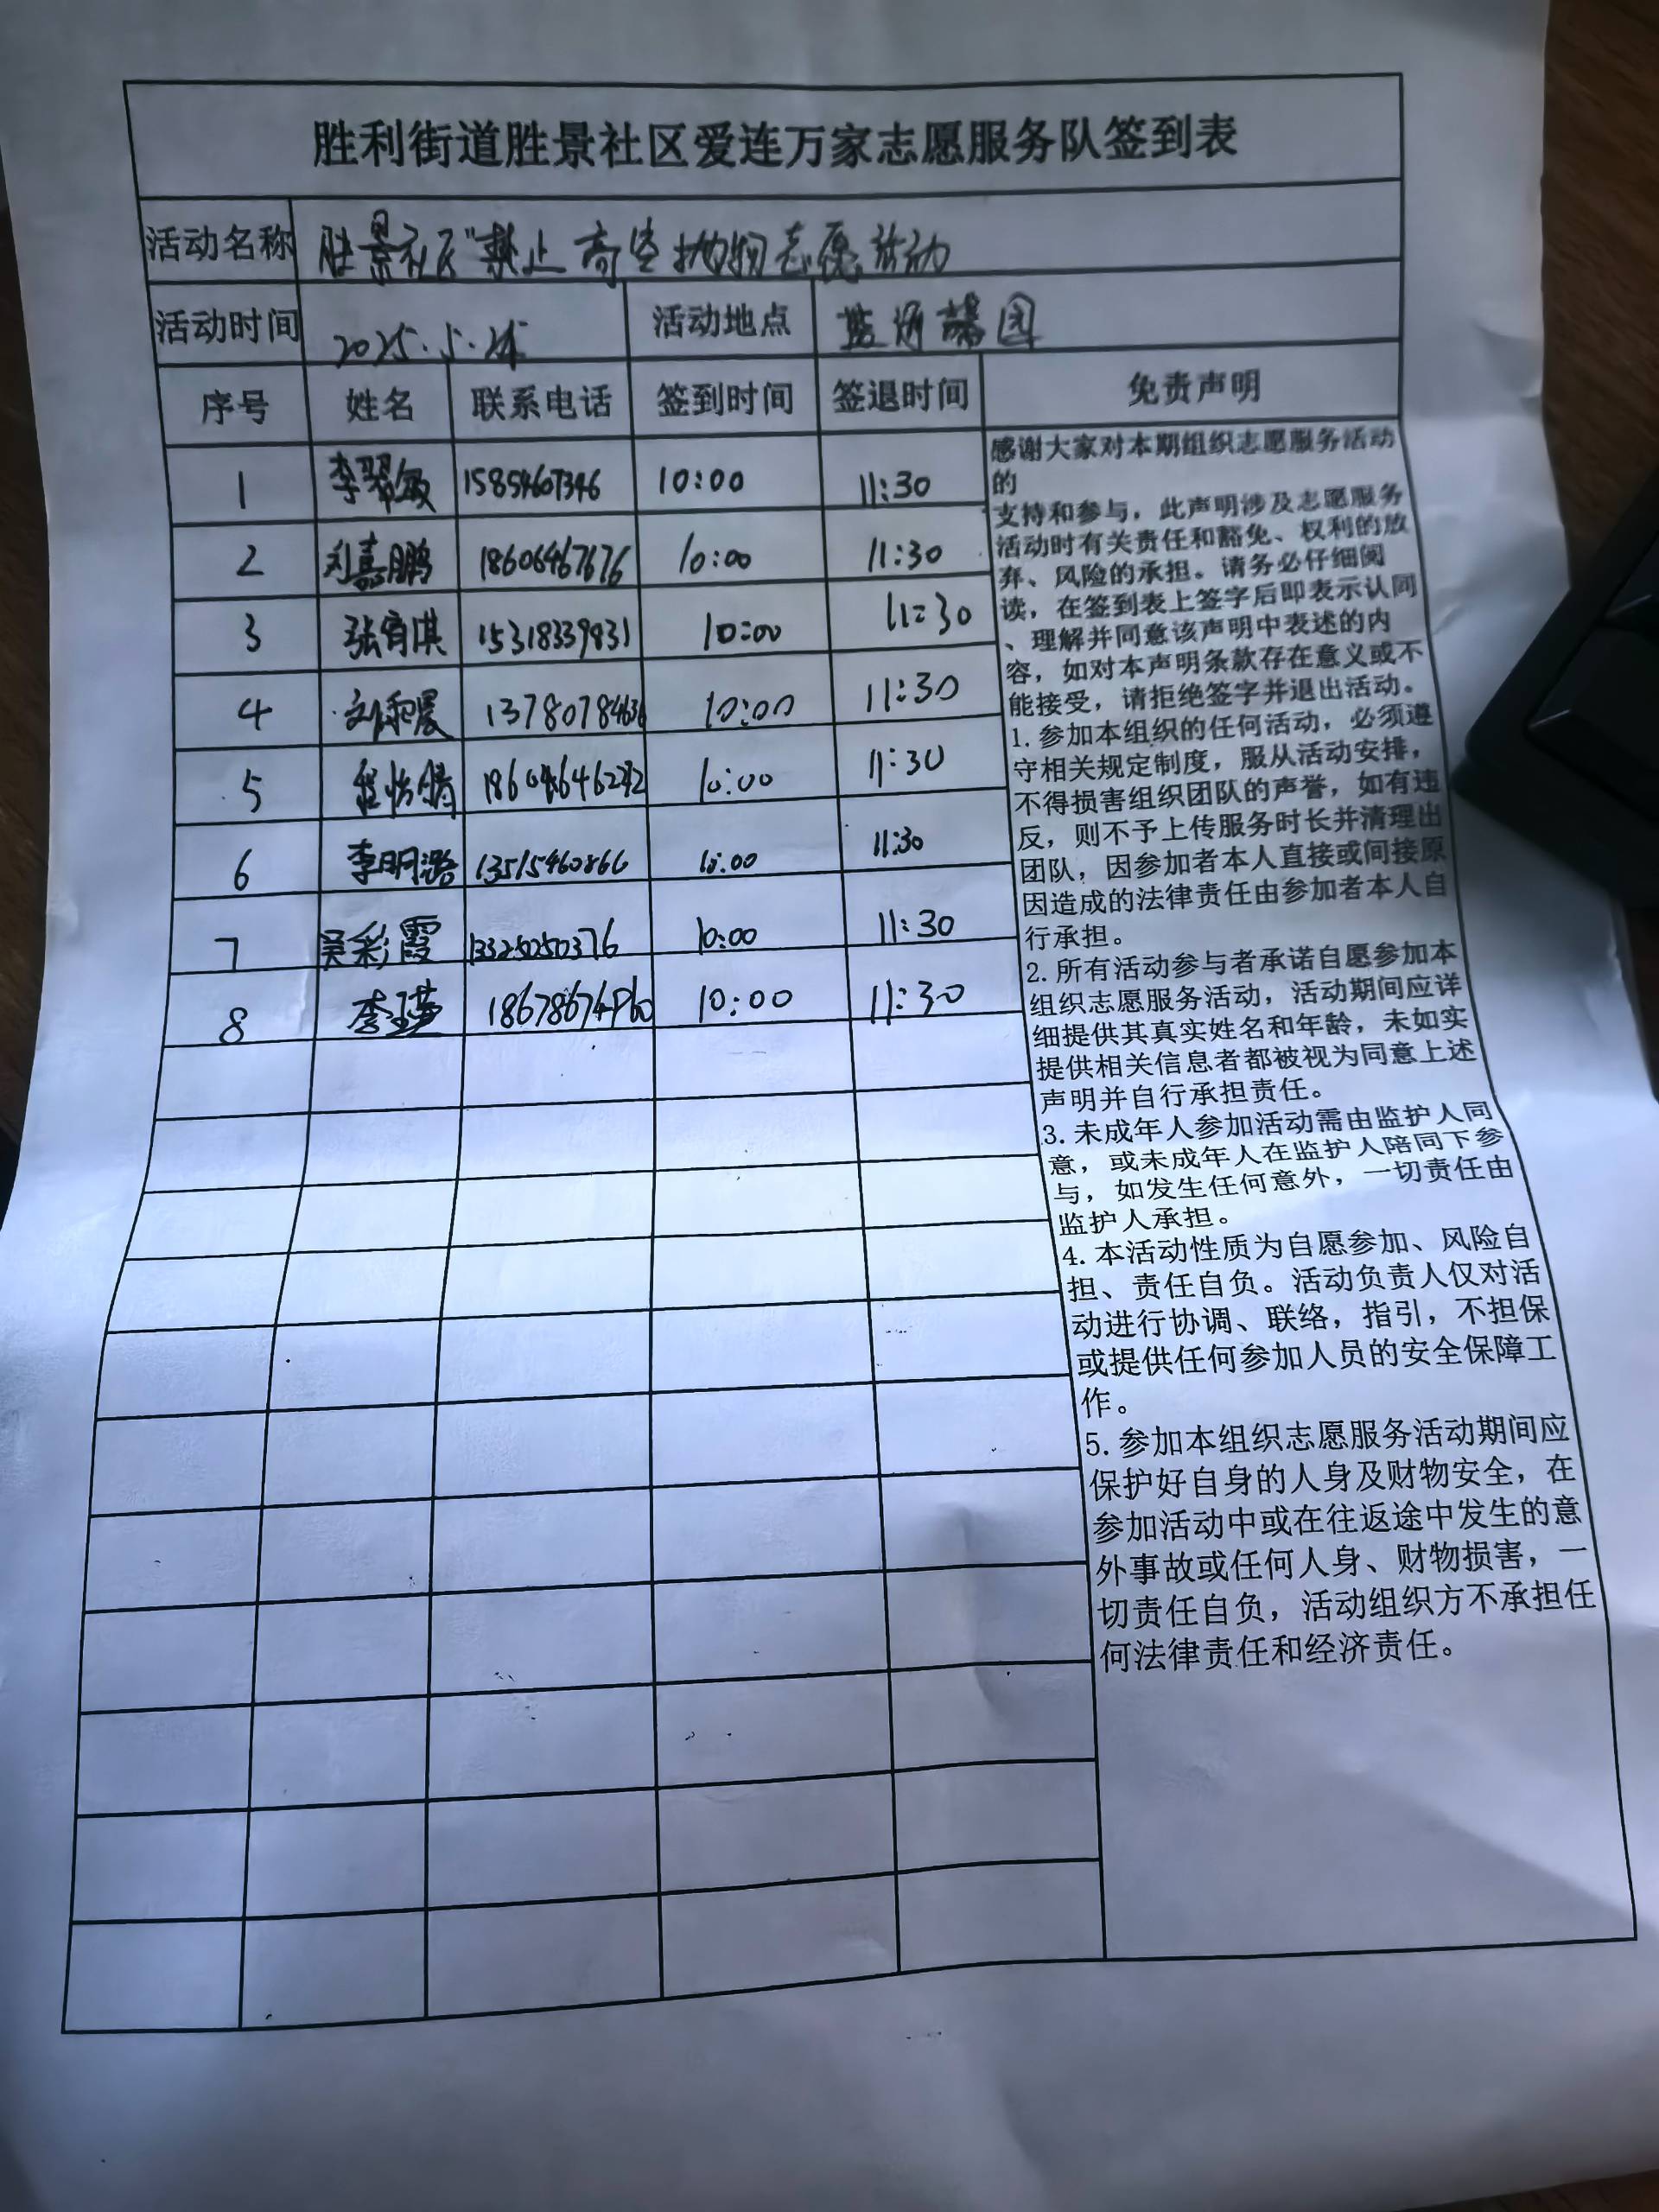 胜利街道胜景社区爱连万家志愿服务队签到表
活动名称 胜景社区"禁止高空抛物志愿活动
活动时间 2025.5. 活动地点 园
序号 姓名 联系电话 签到时间 签退时间 免责声明
1 李翠敏 15854607346 10:00 11:30
2 刘嘉鹏 18606467676 10:00 11:30
3 张育淇 15318339831 10:00 11:30
4 刘和晨 10:00 11:30
5 10:00 11:30
6 李明潞 13515460866 10:00 11:30
7 吴彩霞 13325250376 10:00 11:30
8 李瑛 10:00 11:30
感谢大家对本期组织志愿服务活动
的
支持和参与，此声明涉及志愿服务
活动时有关责任和豁免、权利的放
弃、风险的承担。请务必仔细阅
读，在签到表上签字后即表示认同
、理解并同意该声明中表述的内
容，如对本声明条款存在意义或不
能接受，请拒绝签字并退出活动。
1.参加本组织的任何活动，必须遵
守相关规定制度，服从活动安排，
不得损害组织团队的声誉，如有违
反，则不予上传服务时长并清理出
团队，因参加者本人直接或间接原
因造成的法律责任由参加者本人自
行承担。
2.所有活动参与者承诺自愿参加本
组织志愿服务活动，活动期间应详
细提供其真实姓名和年龄，未如实
提供相关信息者都被视为同意上述
声明并自行承担责任。
3.未成年人参加活动需由监护人同
意，或未成年人在监护人陪同下参
与，如发生任何意外，一切责任由
监护人承担。
4.本活动性质为自愿参加、风险自
担、责任自负。活动负责人仅对活
动进行协调、联络，指引，不担保
或提供任何参加人员的安全保障工
作。
5.参加本组织志愿服务活动期间应
保护好自身的人身及财物安全，在
参加活动中或在往返途中发生的意
外事故或任何人身、财物损害，一
切责任自负，活动组织方不承担任
何法律责任和经济责任。